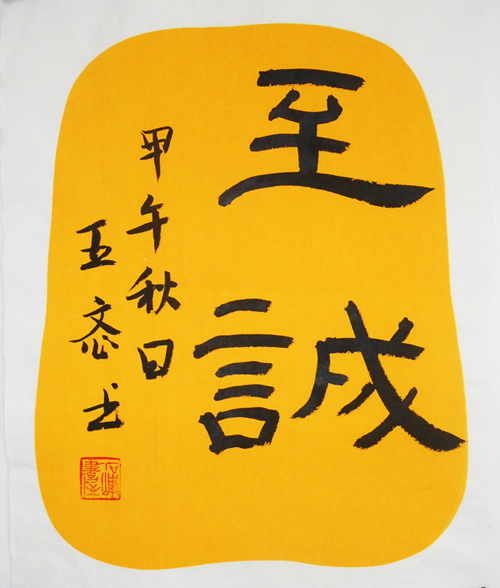 至誠
甲午秋日
王忞书